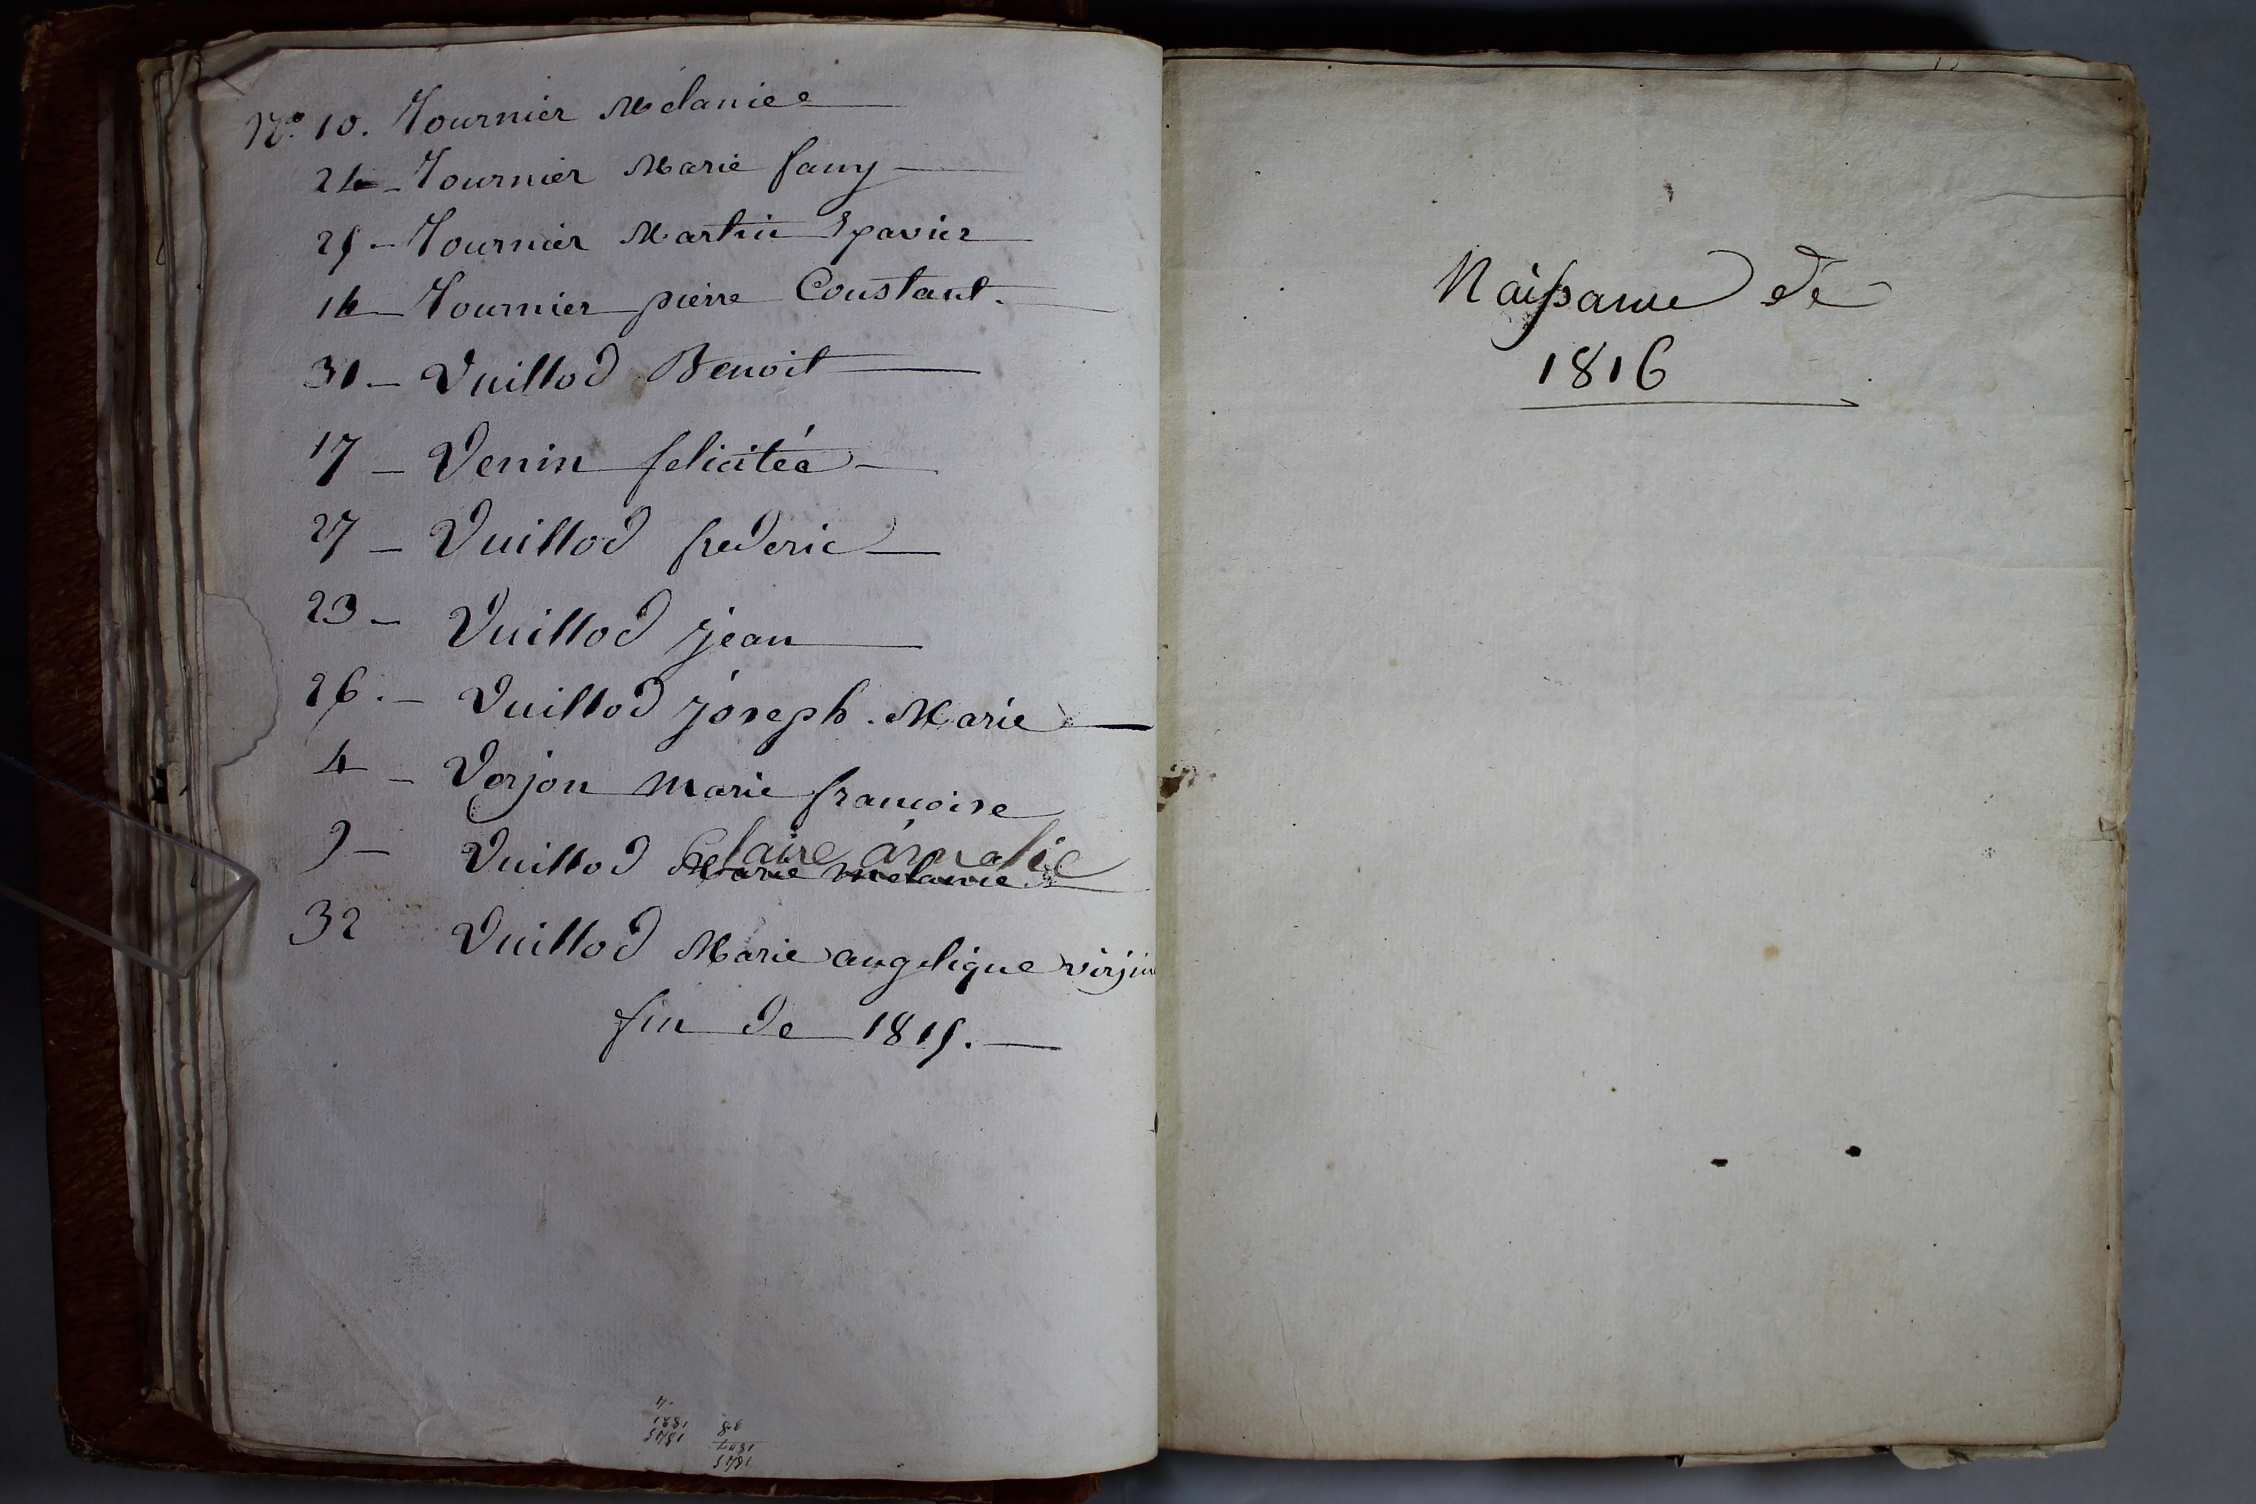 N.o 10. Tournier Mélanie
24 - Tournier Marie fany
25 - Tournier Martin Xpavier
14 Tournier pierre Constant.
31 - Vuillod Benoit
17 - Venin felicitée
27 - Vuillod frederic
23 - Vuillod jean
26. - Vuillod joseph. Marie
4 - Verjon Marie francoise
9 - Vuillod Claire amalie
Marie melanie
32 Vuillod Marie angelique virjin
fin de 1815.
Naissance de
1816
1845
1807
38
1845
1881